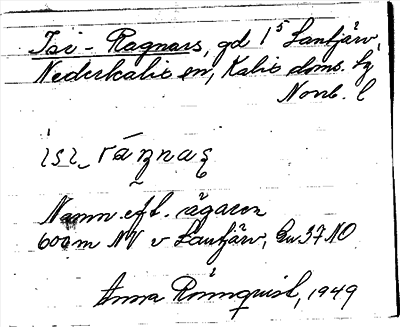 Isi-Ragnars, gd 1⁵ Lantjärv,
Nederkalix sn, Kalix doms. tg
Norrb. l
ìsı_ ráƞnaʂ
Namn eft. ägaren
600 m NV v Lantjärv, Gu 37 NO
Anna Rönnquist, 1949